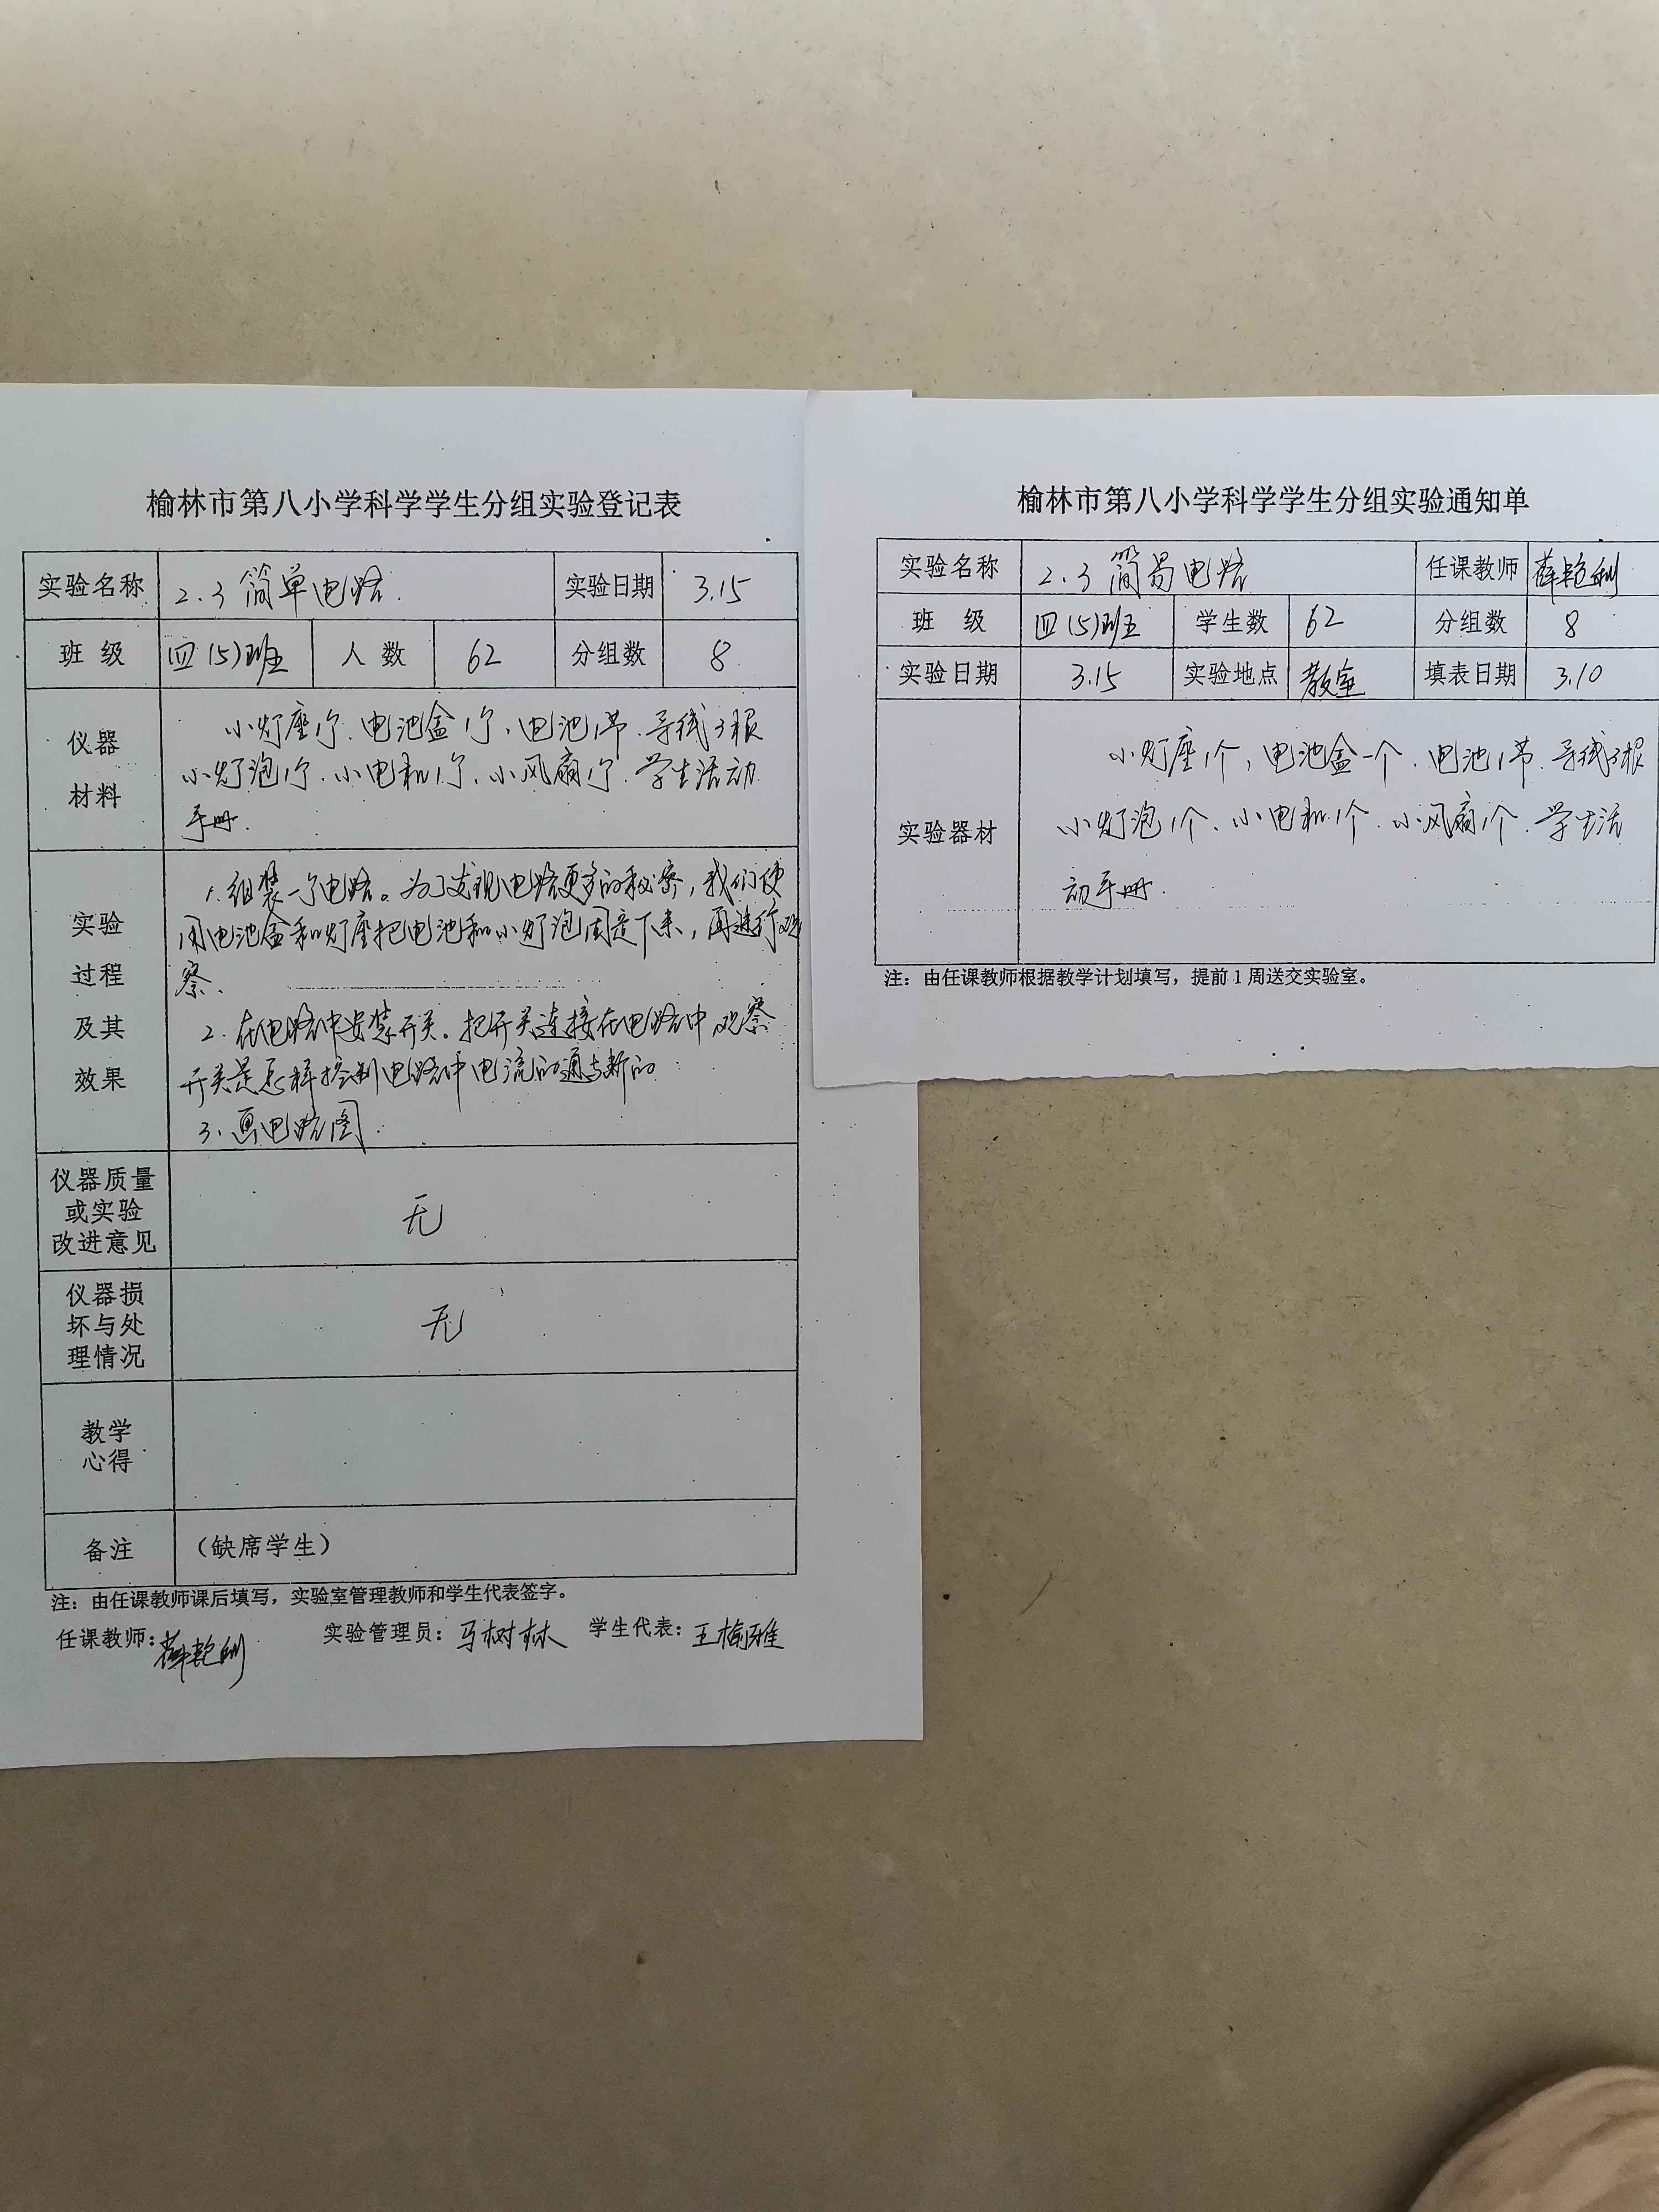 榆林市第八小学科学学生分组实验登记表
实验名称 2.3 简单电路. 实验日期 3.15
班 级 四(5)班 人 数 62 分组数 8
仪器
材料
小灯座1个、电池盒1个、电池1节、导线3根
小灯泡1个、小电机1个、小风扇1个、学生活动
手册.
实验
过程
及其
效果
1.组装一个电路。为了发现电路更多的秘密,我们使
用电池盒和灯座把电池和小灯泡固定下来,再进行观
察、
2.在电路中安装开关。把开关连接在电路中,观察
开关是怎样控制电路中电流的通与断的.
3.画电路图.
仪器质量
或实验
改进意见
无
仪器损
坏与处
理情况
无
教学
心得
备注 (缺席学生)
注：由任课教师课后填写，实验室管理教师和学生代表签字。
任课教师:薛艳利 实验管理员:马树林 学生代表:王榆雅
榆林市第八小学科学学生分组实验通知单
实验名称 2.3 简易电路 任课教师 薛艳利
班 级 四(5)班 学生数 62 分组数 8
实验日期 3.15 实验地点 教室 填表日期 3.10
实验器材
小灯座1个,电池盒一个、电池1节、导线3根
小灯泡1个、小电机1个、小风扇1个、学生活
动手册.
注：由任课教师根据教学计划填写，提前1周送交实验室。